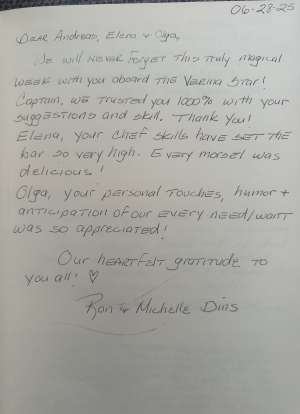 06-28-25
Dear Andreas, Elena & Olga,
We will never forget this truly magical
week with you aboard the Verina Star!
Captain, we trusted you 100% with your
suggestions and skill. Thank you!
Elena, your chef skills have set the
bar so very high. Every morsel was
delicious!
Olga, your personal touches, humor +
anticipation of our every need/want
was so appreciated!
Our heartfelt gratitude to
you all! ♡
Ron & Michelle Dins